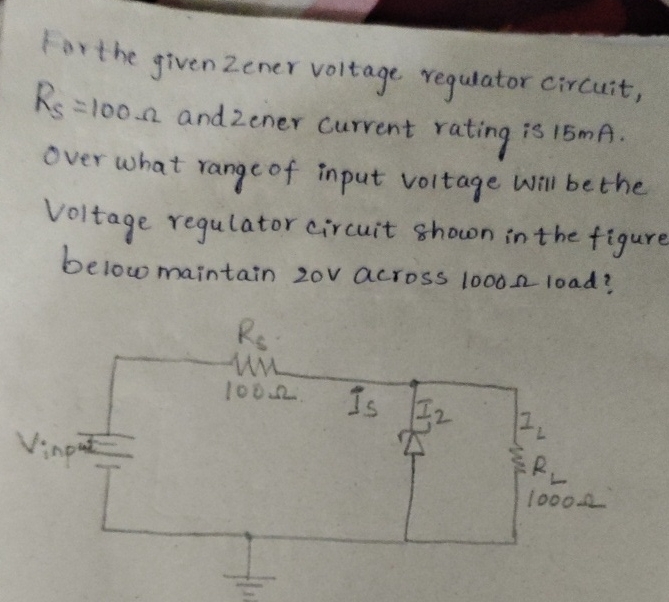 For the given Zener voltage regulator circuit,
Rs = 100Ω and Zener current rating is 15mA.
Over what range of input voltage will be the
Voltage regulator circuit shown in the figure
below maintain 20V across 1000Ω load?
Rs
100Ω
Is
Iz
IL
Vinput
RL
1000Ω